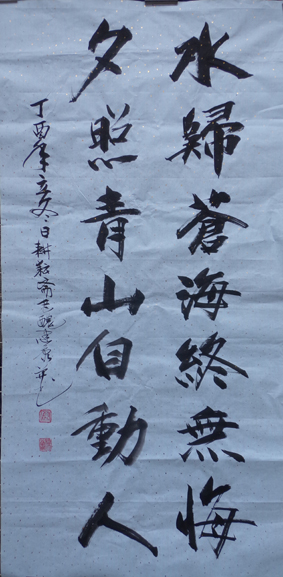 水歸蒼海終無悔
夕照青山自動人
丁酉年立冬日耕